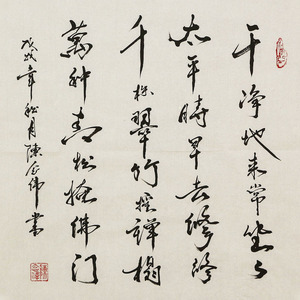 干净地来常坐々
太平時早去修修
千株翠竹探禪榻
萬种青松掩佛门
戊戌年秋月陳伟書